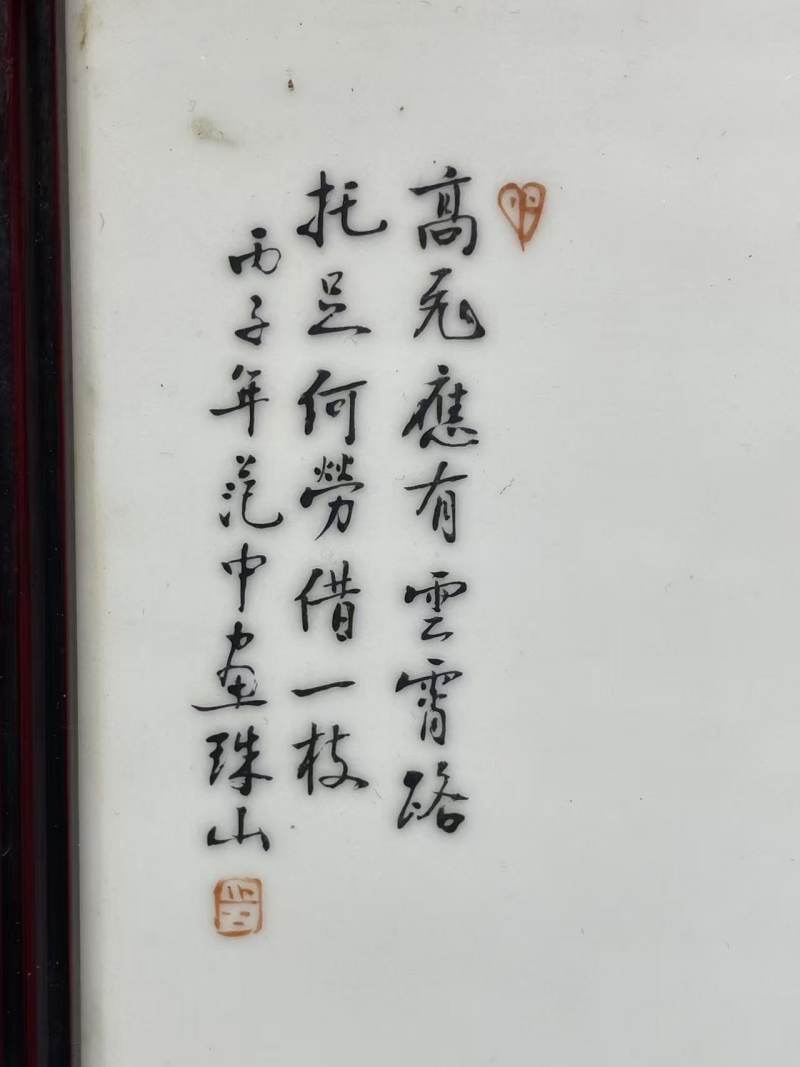 高飛應有雲霄路
托足何勞借一枝
丙子年范中畫珠山